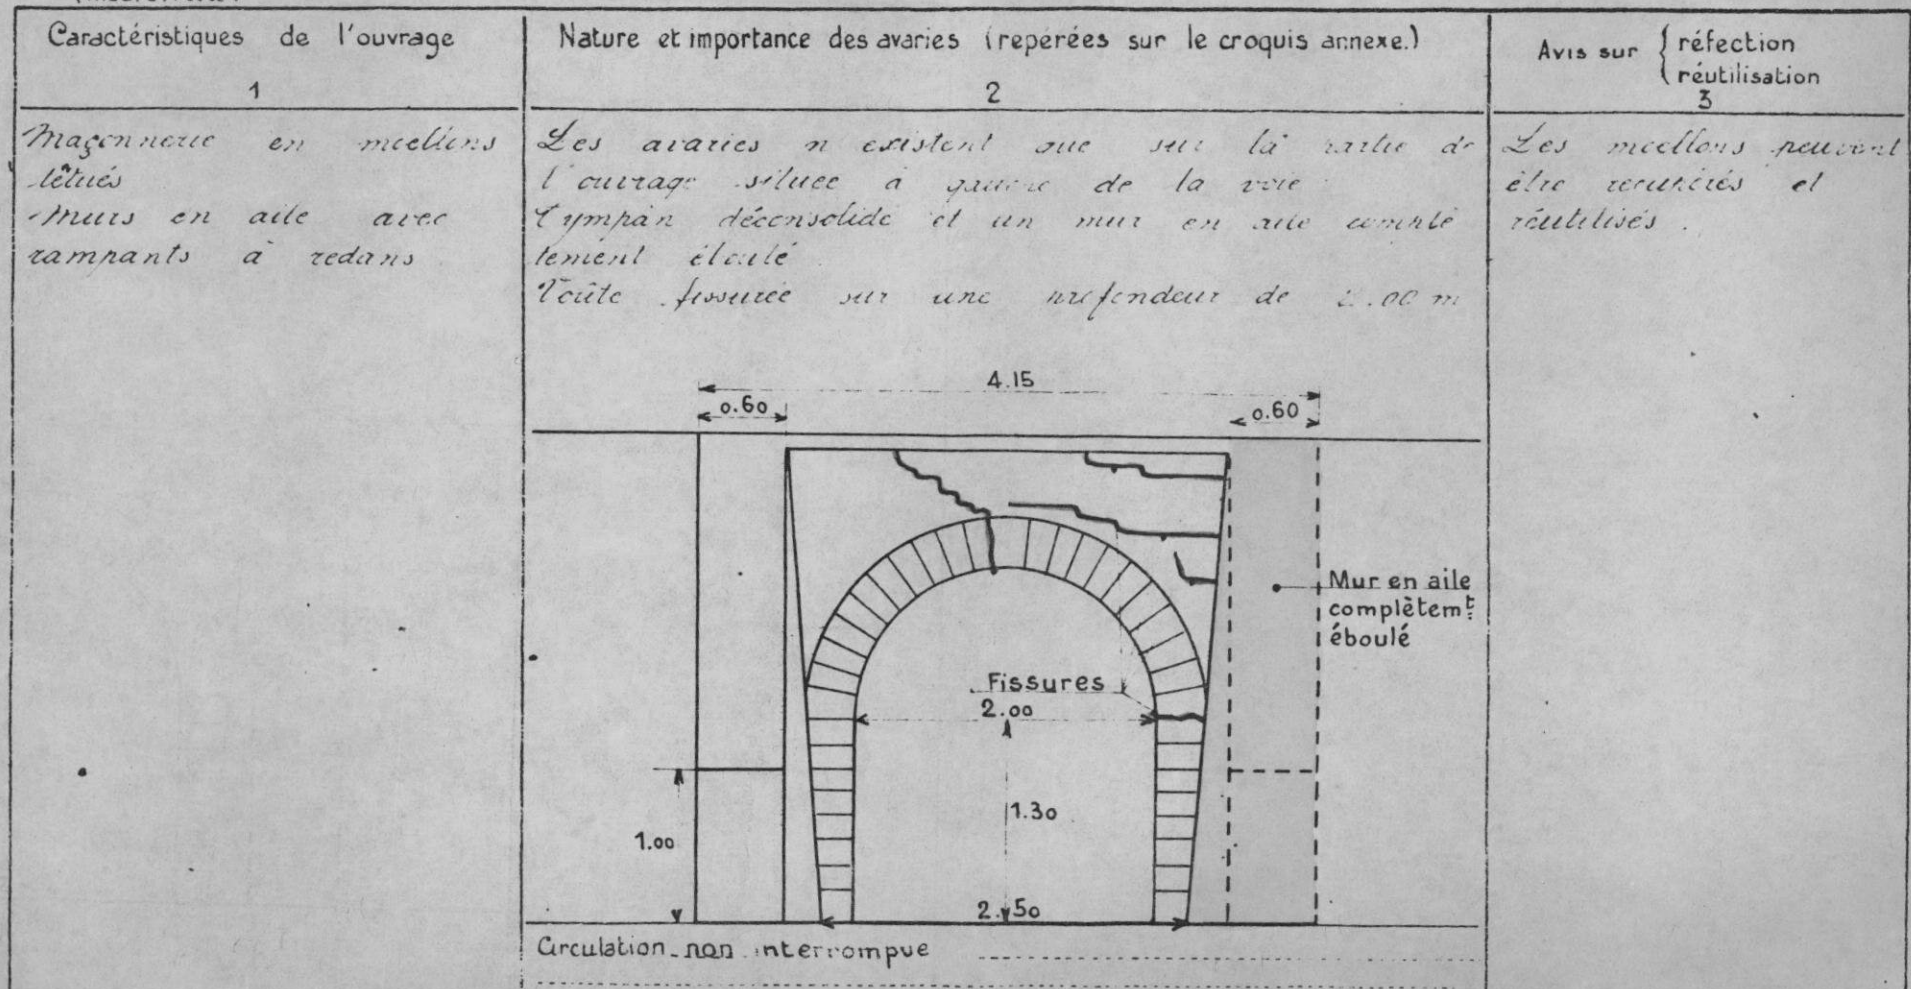 Caractéristiques de l'ouvrage
1
Nature et importance des avaries (repérées sur le croquis annexe.)
2
Avis sur { réfection
réutilisation
3
Maçonnerie en moellons
têtués
Murs en aile avec
rampants à redans
Les avaries n'existent que sur la partie de
l'ouvrage située à gauche de la voie
Tympan déconsolidé et un mur en aile complè
tement éboulé
Voûte fissurée sur une profondeur de .00 m
Les moellons peuvent
être récupérés et
réutilisés.
4.15
0.60
0.60
Mur en aile
complètemt
éboulé
Fissures
2.00
1.30
1.00
2.50
Circulation non interrompue